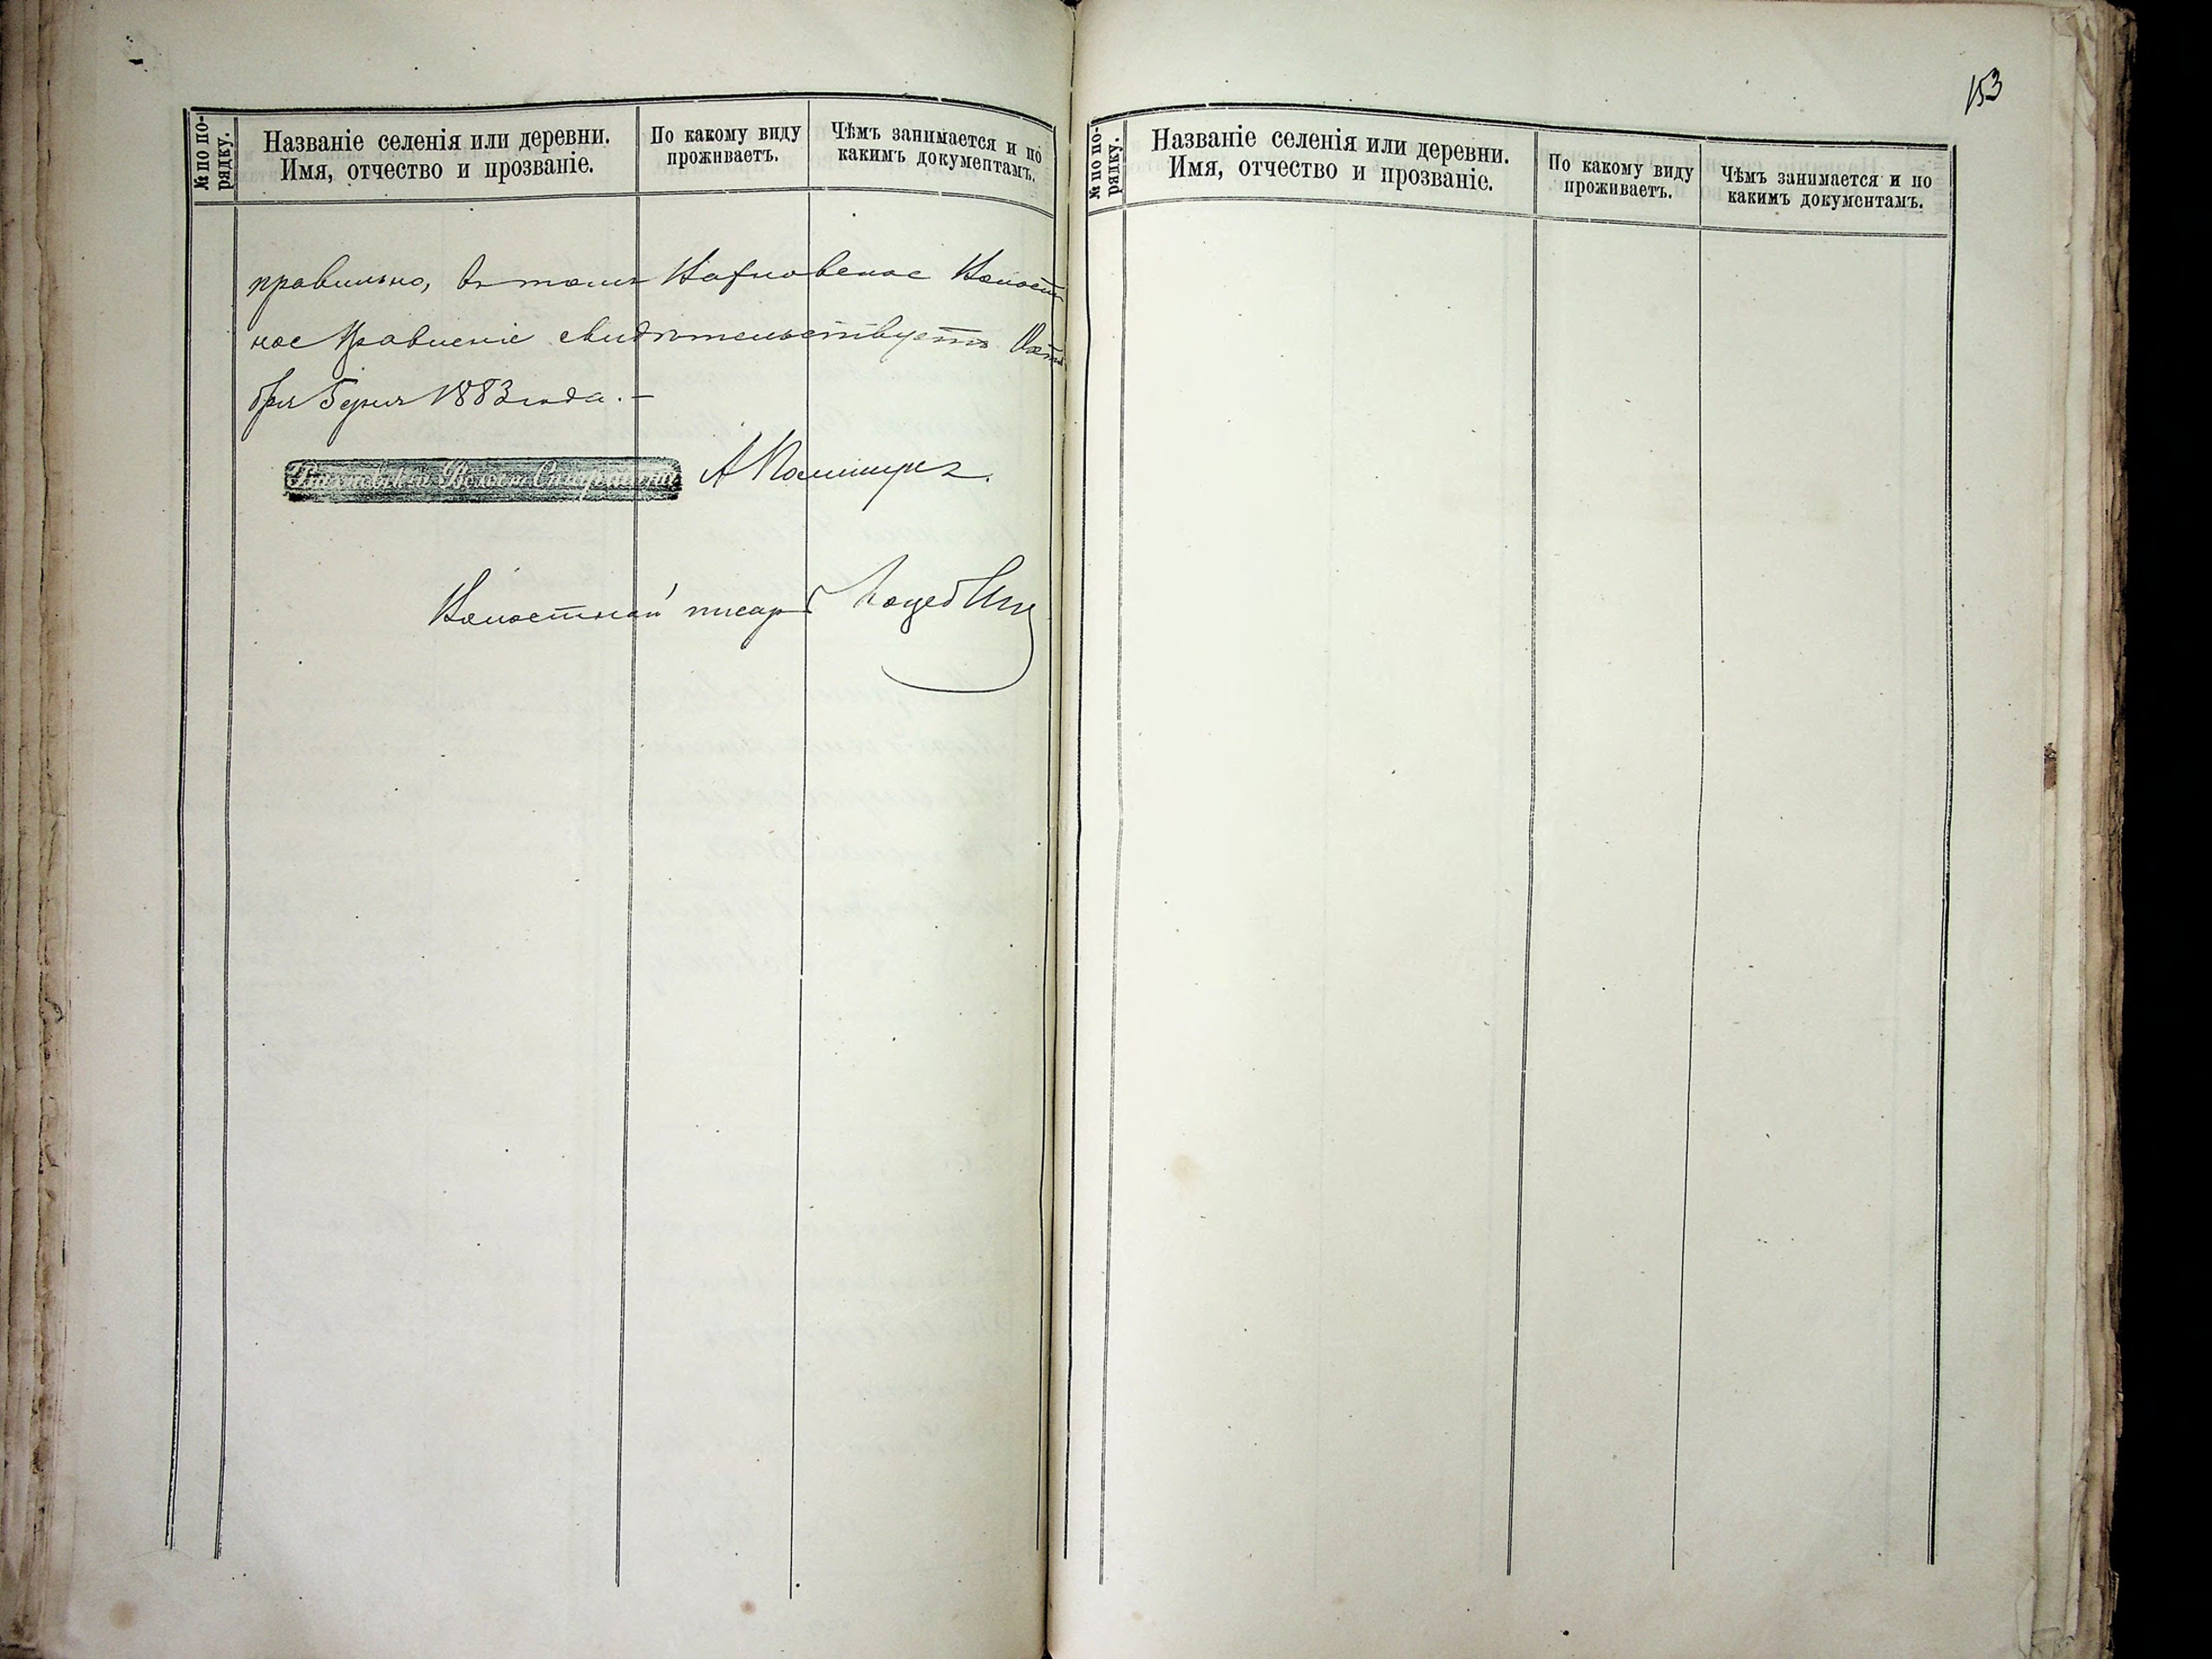 153
№ по по-
рядку.
Названіе селенія или деревни.
Имя, отчество и прозваніе.
По какому виду
проживаетъ.
Чѣмъ занимается и по
какимъ документамъ.
правильно, въ томъ Волост
ное Правленіе свидѣтельствуетъ Октя
бря 5 дня 1883 года. –
Волост. Старшина
Волостной писарь
№ по по-
рядку.
Названіе селенія или деревни.
Имя, отчество и прозваніе.
По какому виду
проживаетъ.
Чѣмъ занимается и по
какимъ документамъ.